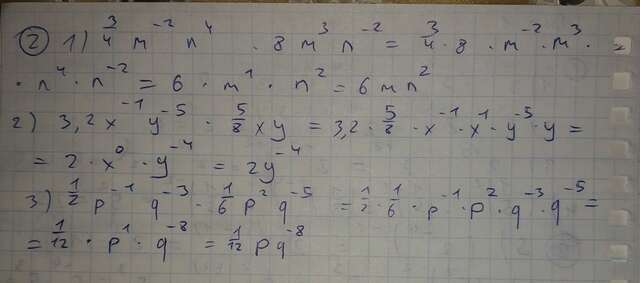 ② 1) 3/4 m⁻² n⁴ · 8 m³ n⁻² = 3/4 · 8 · m⁻² · m³ · =
· n⁴ · n⁻² = 6 · m¹ · n² = 6 m n²
2) 3,2 x⁻¹ y⁻⁵ · 5/8 x y = 3,2 · 5/8 · x⁻¹ · x¹ · y⁻⁵ · y =
= 2 · x⁰ · y⁻⁴ = 2y⁻⁴
3) 1/2 p⁻¹ q⁻³ · 1/6 p² q⁻⁵ = 1/2 · 1/6 · p⁻¹ · p² · q⁻³ · q⁻⁵ =
= 1/12 · p¹ · q⁻⁸ = 1/12 p q⁻⁸